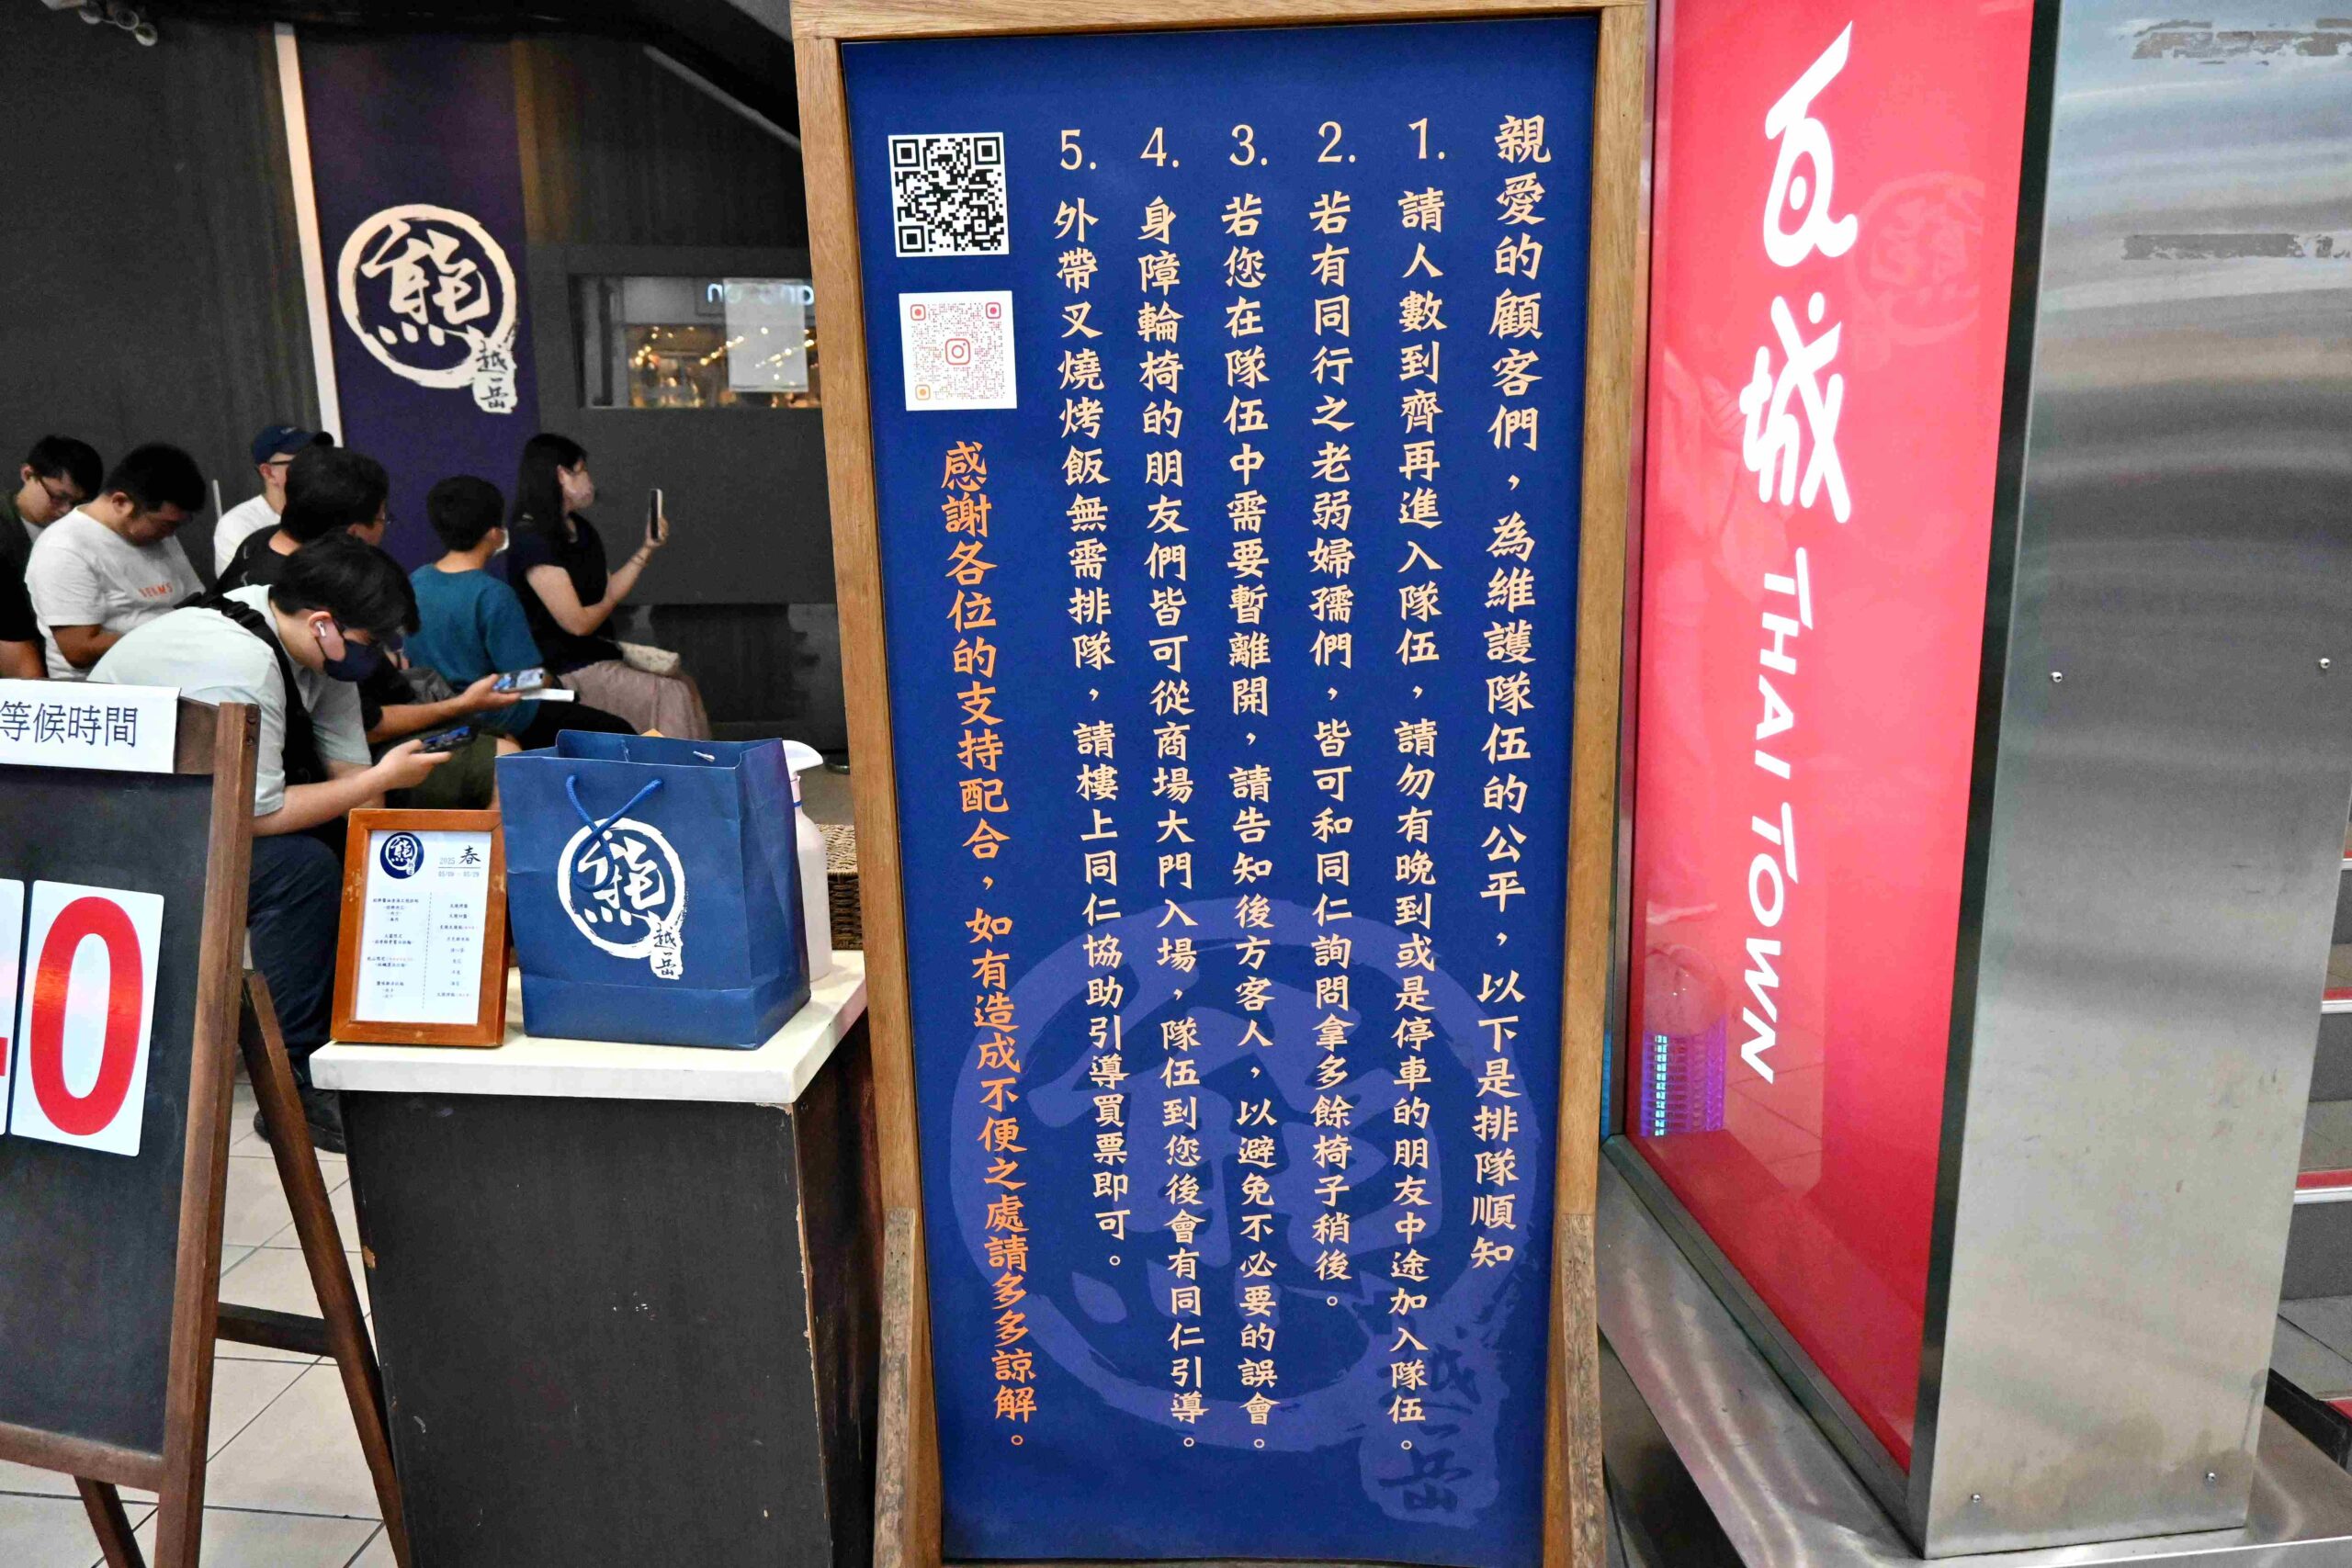 親愛的顧客們，為維護隊伍的公平，以下是排隊順知
1. 請人數到齊再進入隊伍，請勿有晚到或是停車的朋友中途加入隊伍。
2. 若有同行之老弱婦孺們，皆可和同仁詢問拿多餘椅子稍後。
3. 若您在隊伍中需要暫離開，請告知後方客人，以避免不必要的誤會。
4. 身障輪椅的朋友們皆可從商場大門入場，隊伍到您後會有同仁引導。
5. 外帶叉燒烤飯無需排隊，請樓上同仁協助引導買票即可。
感謝各位的支持配合，如有造成不便之處請多多諒解。
瓦城 THAI TOWN
熊
越岳
等候時間
0
熊
越岳
2025 春
熊
越岳